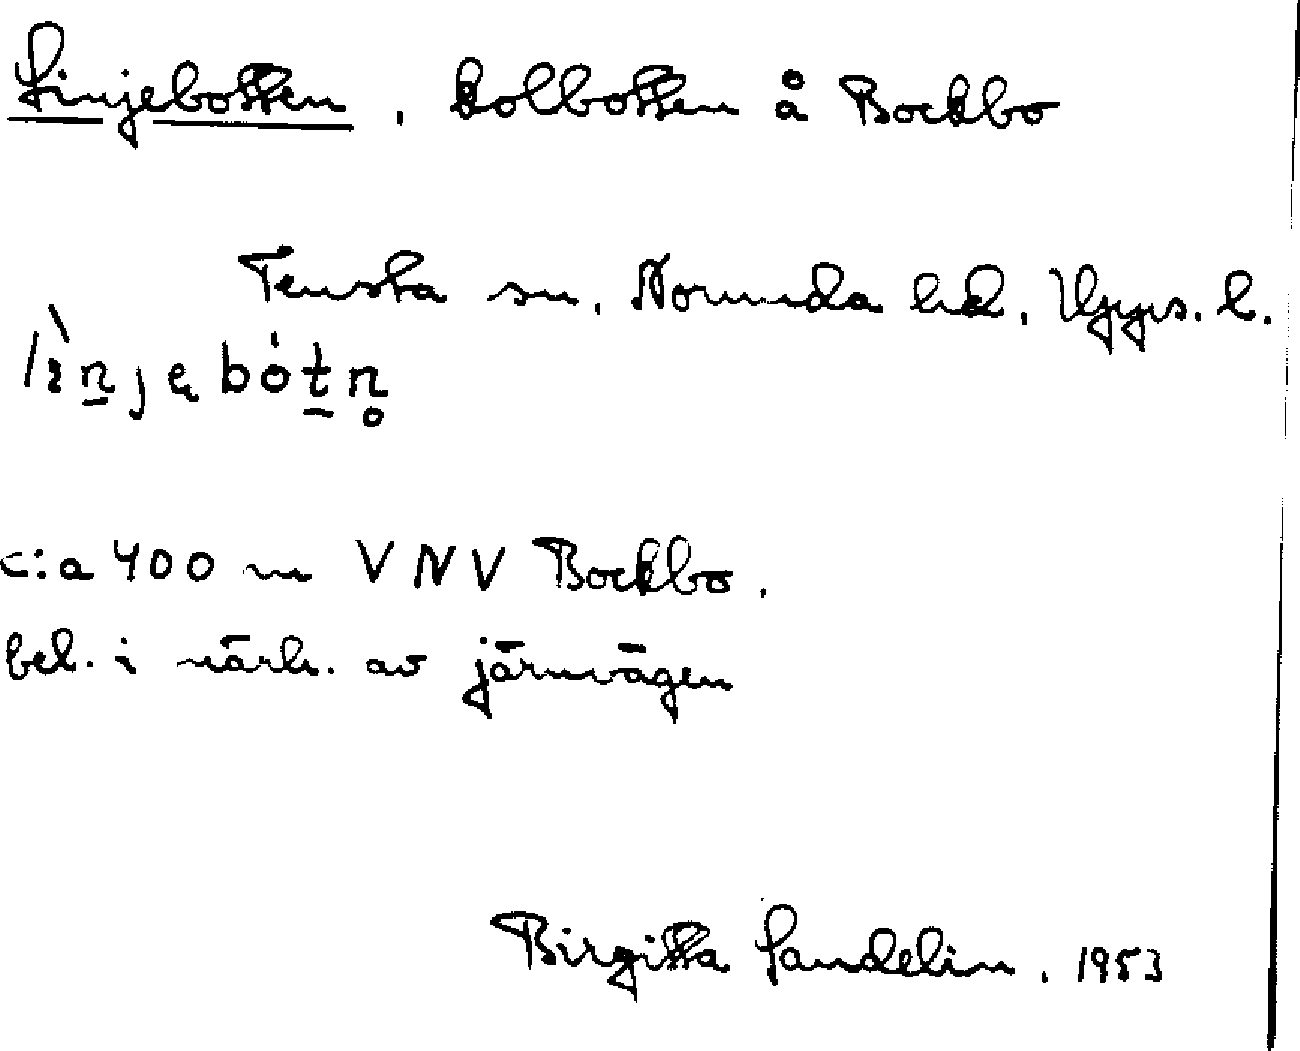 Linjebotten, kolbotten å Bockbo
Tensta sn, Norunda hd, Upps. l.
lìnjebótn
c:a 400 m VNV Bockbo,
bel. i närh. av järnvägen
Birgitta Sandelin. 1953